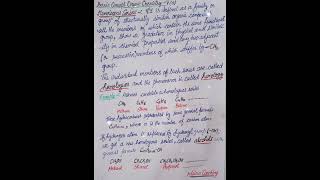 Basic Concept Organic Chemistry
Homologous Series - It is defined as a family or
group of structurally similar organic compounds
all the members of which contain the same functional
group, show a gradation in physical and similar-
ity in chemical properties and any two adjacent
(or successive) members of which differ by -CH2
group.
The individual members of such series are called
homologues and the phenomenon is called homology
Example - Alkanes constitute a homologous series
CH4 C2H6 C3H8 C4H10
Methane Ethane Propane Butane
These hydrocarbons represented by general formula
CnH2n+2, where n is the number of carbon atoms.
If one hydrogen is replaced by hydroxyl group (-OH),
we get a new homologous series, called alcohols
general formula CnH2n+1OH
CH3OH CH3CH2OH CH3CH2CH2OH
Methanol Ethanol Propanol